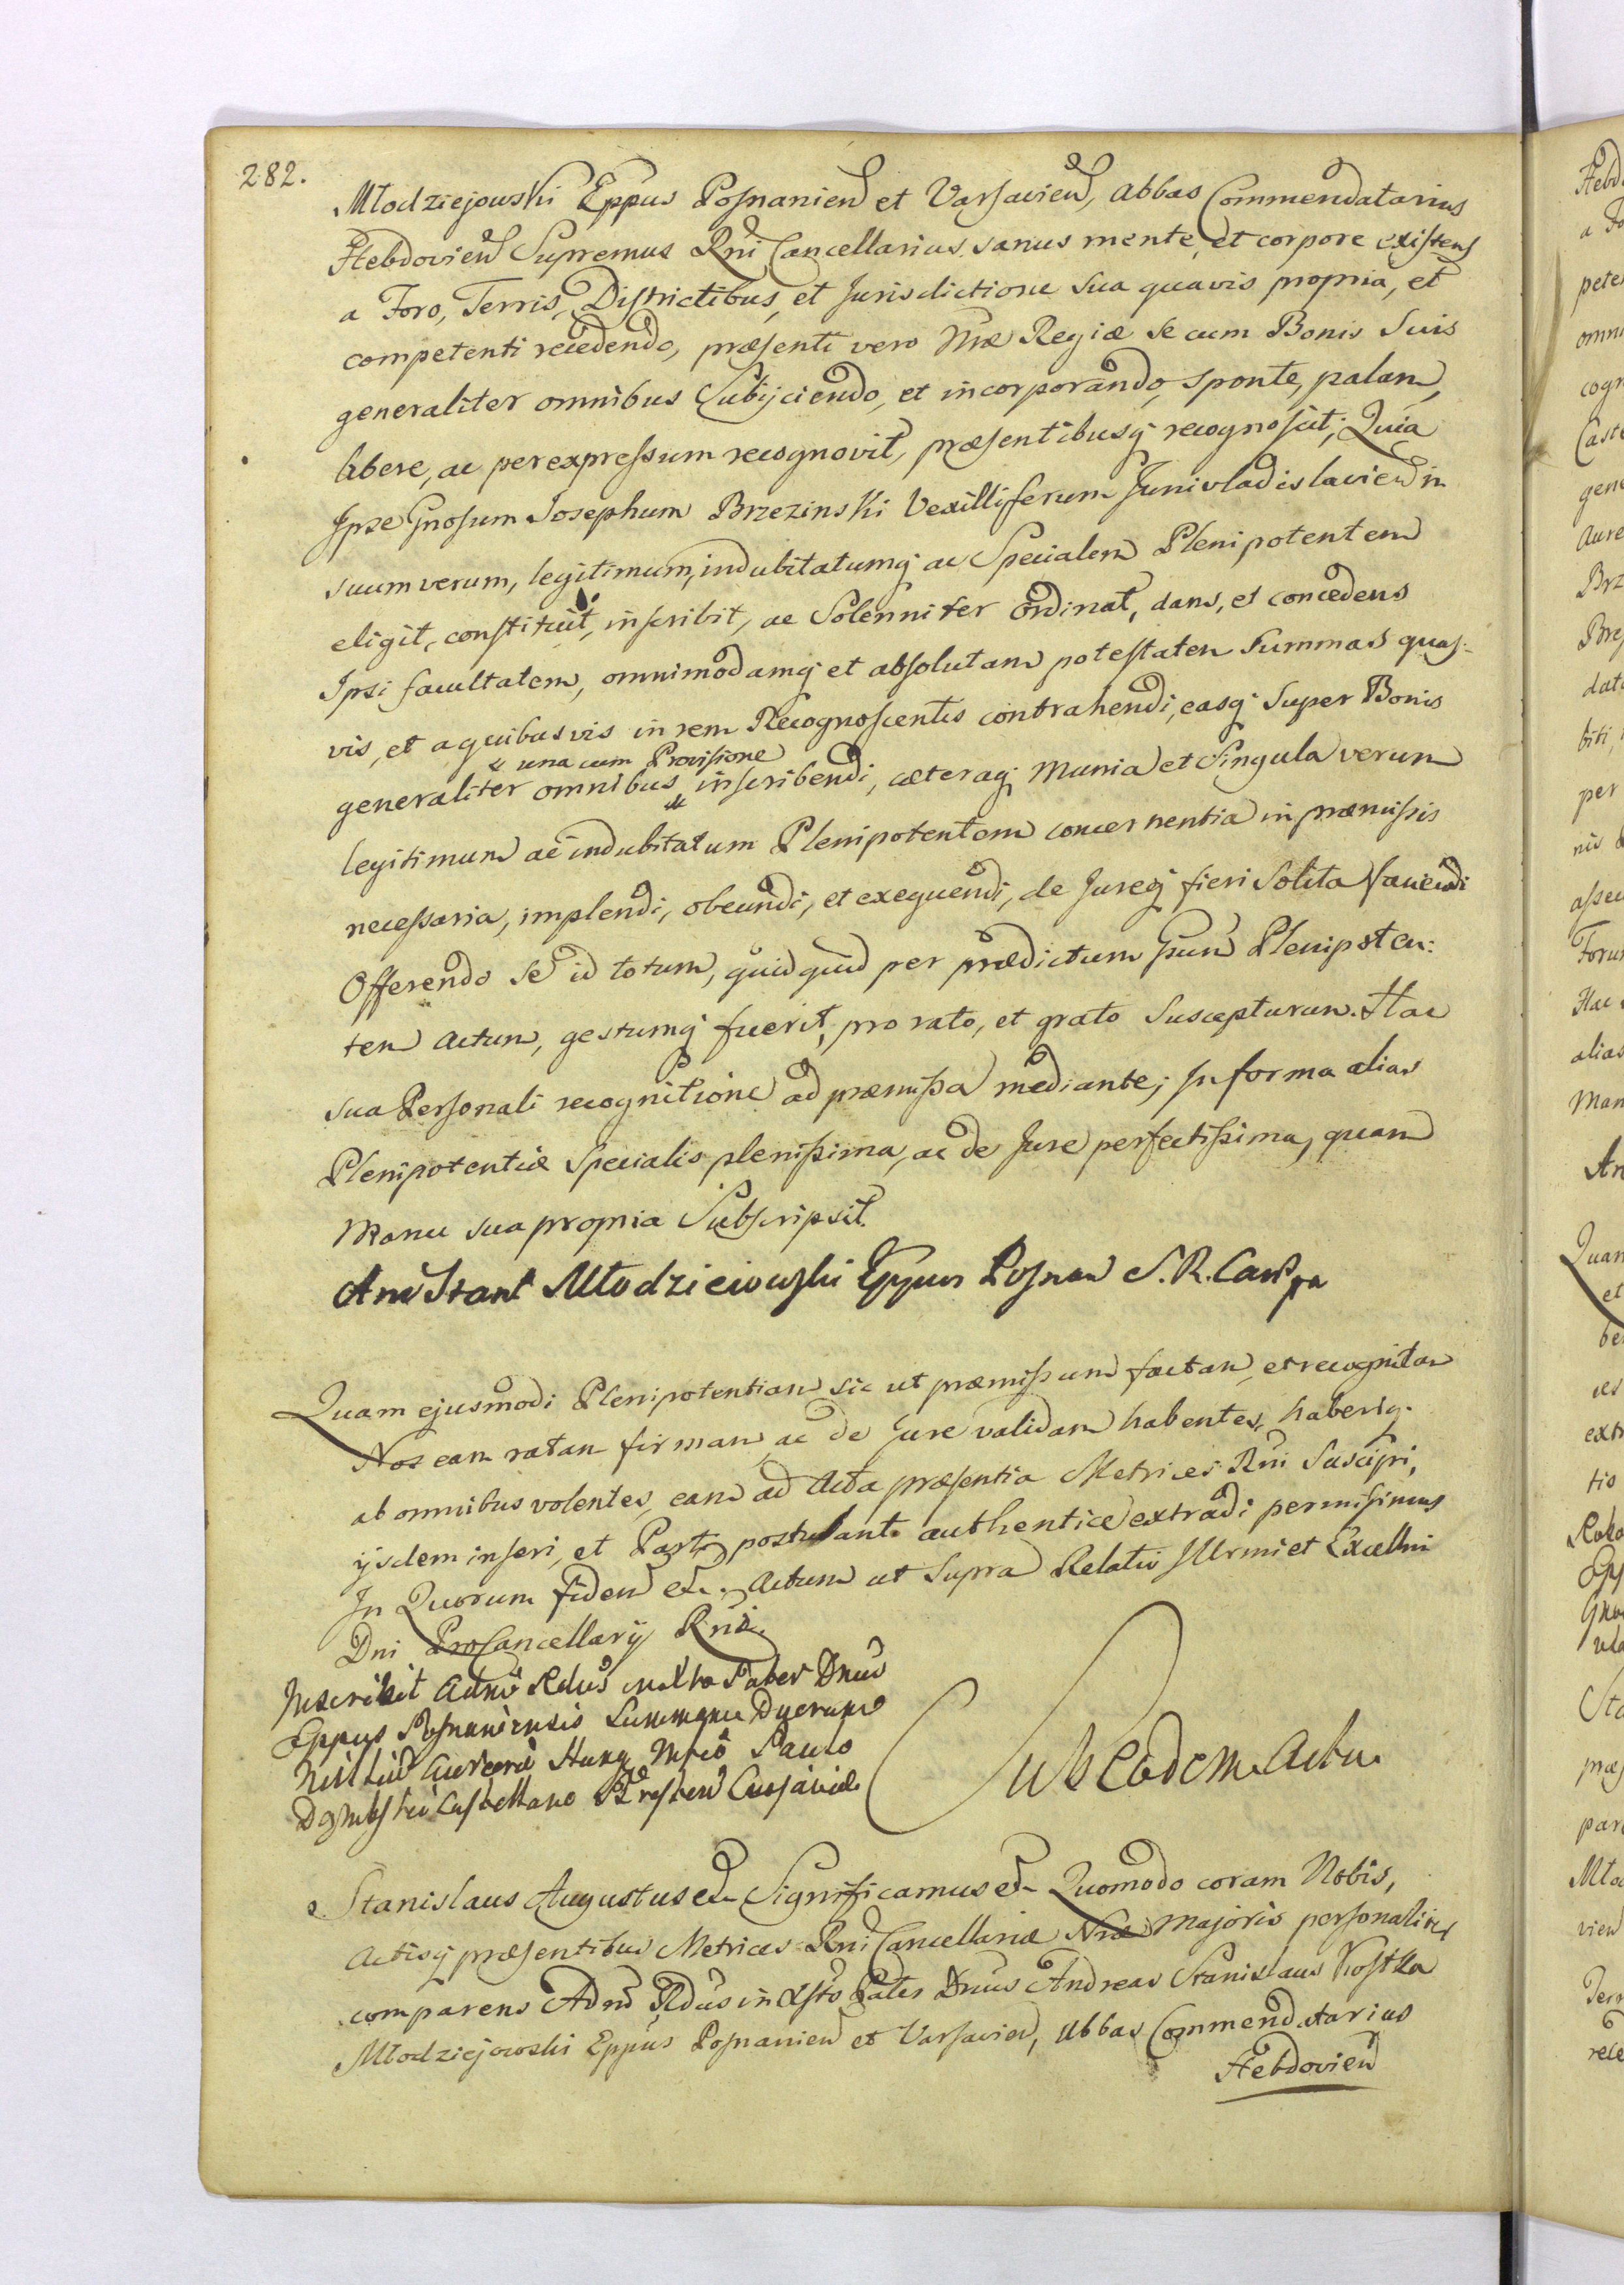 282.
Młodziejowski Eppus Posnanien et Varsavien, Abbas Commendatarius
Hebdovien Supremus Rni Cancellarius sanus mente, et corpore existens
a Foro, Terris, Districtibus, et Jurisdictione sua quavis propria, et
competenti recedendo, præsenti vero Nræ Regiæ se cum Bonis Suis
generaliter omnibus Subijciendo, et incorporando, sponte, palam,
libere, ac per expressum recognovit, præsentibusq recognoscit; Quia
Ipse Gnosum Josephum Brzezinski Vexilliferum Junivladislavien in
suum verum, legitimum, indubitatumq ac Specialem Plenipotentem
eligit, constituit, inscribit, ac Solenniter ordinat, dans, et concedens
Ipsi facultatem, omnimodamq et absolutam potestatem Summas quas-
vis, et a quibusvis in rem Recognoscentis contrahendi, easq Super Bonis
una cum Provisione
generaliter omnibus inscribendi, cæteraq Munia et Singula verum
legitimum ac indubitatum Plenipotentem concernentia in præmissis
necessaria, implendi, obeundi, et exequendi, de Jureq fieri Solita faciendi
Offerendo se id totum, quidquid per prædictum Gsum Plenipoten:
tem actum, gestumq fuerit, pro rato, et grato Suscepturum. Hac
sua Personali recognitione ad præmissa mediante; In forma alias
Plenipotentiæ Specialis plenissima, ac de Jure perfectissima, quam
Manu sua propria Subscripsit.
Młodzieiowski Eppus Posnan S. R. Canc
Quam ejusmodi Plenipotentiam sic ut præmissum factam, et recognitam
Nos eam ratam firmam, ac de Jure validam habentes, haberiq
ab omnibus volentes, eam ad Acta præsentia Metrices Rni Suscipi,
ijsdem inseri, et Parti postulanti authentice extradi permisimus
In Quorum fidem etc. Actum ut Supra Relatio Illrmi et Excellmi
Dni ProCancellarij Rni.
Inscribit Admo Rdus in Xto Pater Dnus
Eppus Posnaniensis Summam Ducrum
Millium Aureorum Hung Mfco Paulo
Dąmbski Castellano Bresten Cujavien
Sub Eodem Actu
Stanislaus Augustus etc Significamus etc Quomodo coram Nobis,
Actisq præsentibus Metrices Rni Cancellariæ Nræ Majoris personaliter
comparens Admo Rdus in Xsto Pater Dnus Andreas Stanislaus Kostka
Młodziejowski Eppus Posnanien et Varsavien, Abbas Commendatarius
Hebdovien